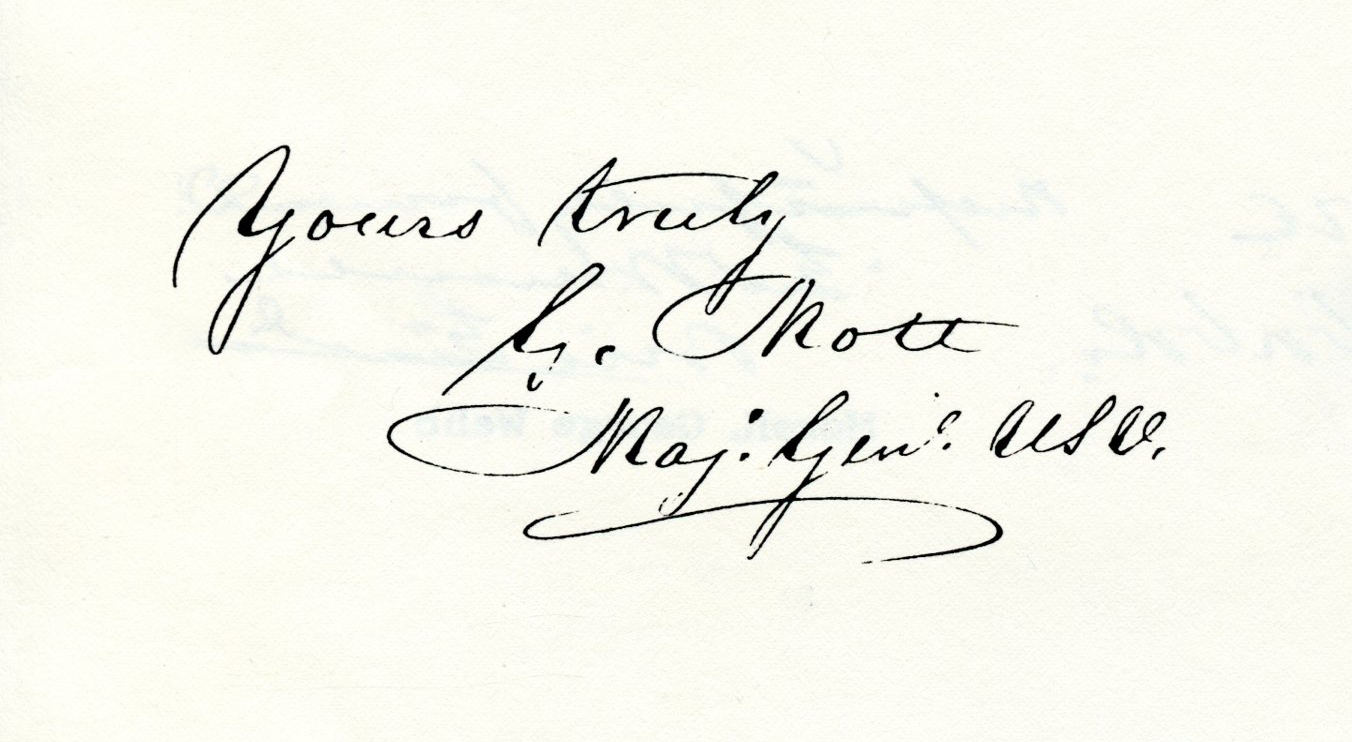 Yours truly
G. Mott
Maj. Genl. USV.